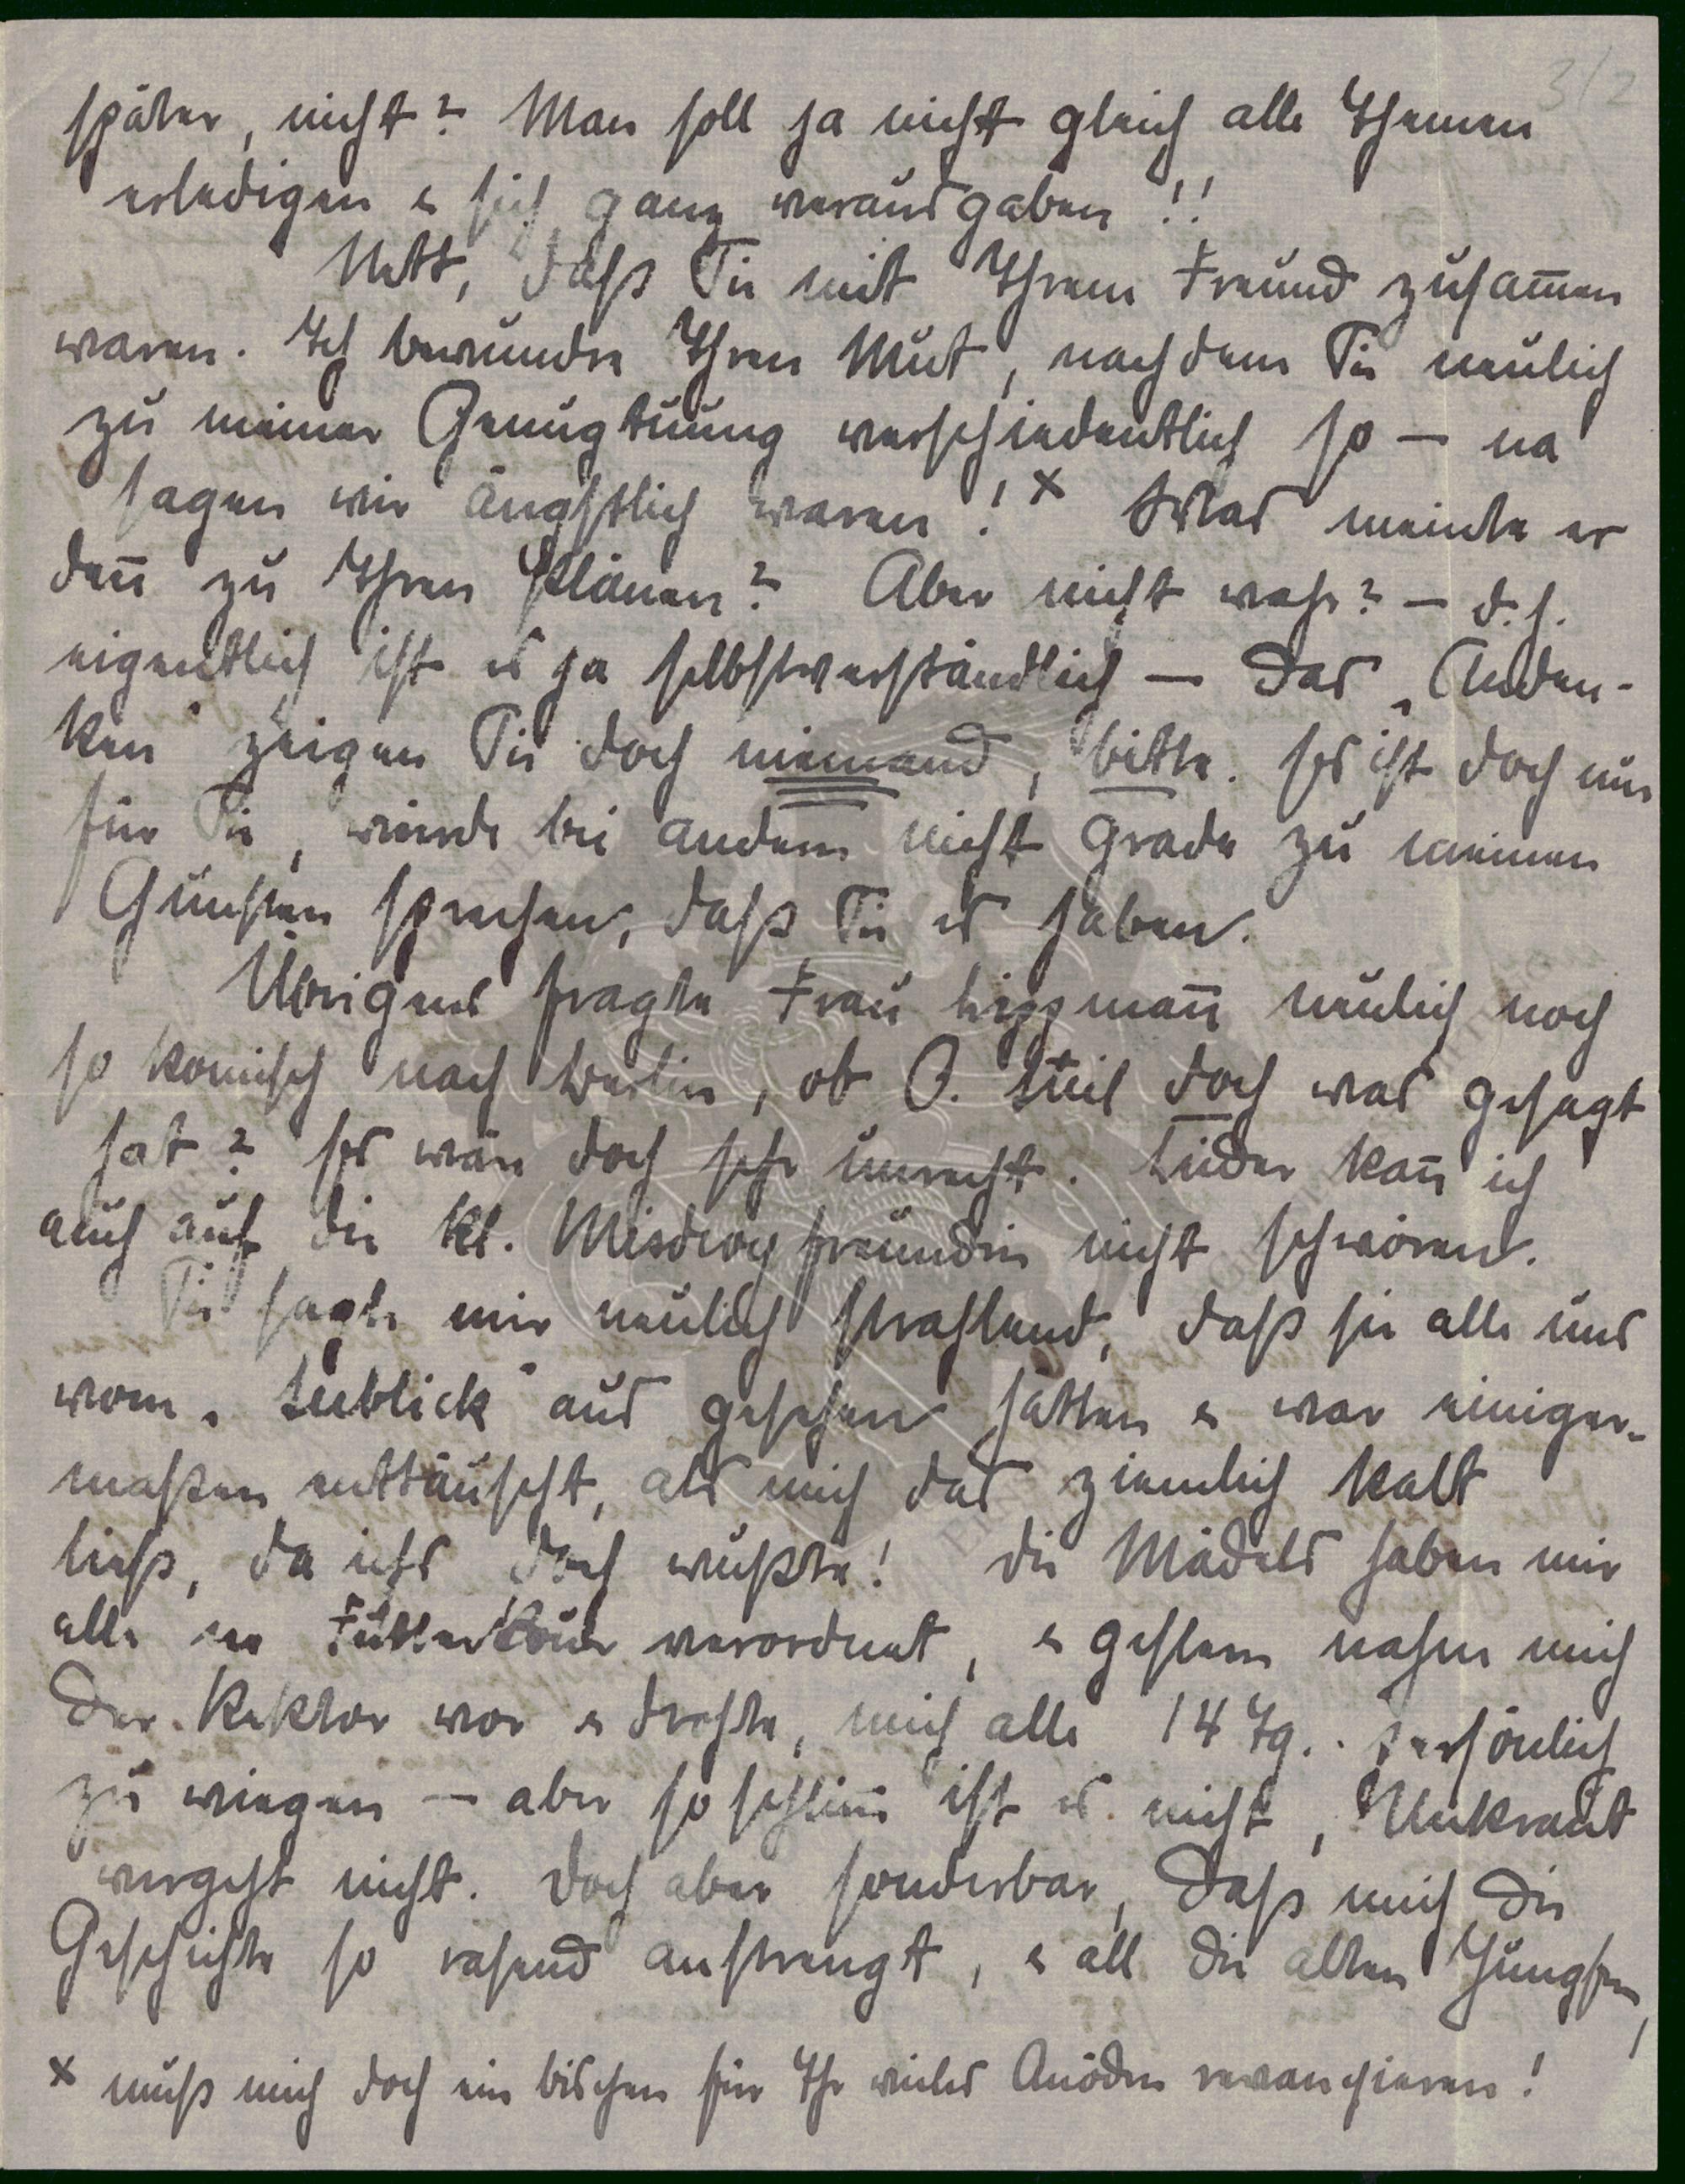 3/2
später, nicht? Man soll ja nicht gleich alle Themen
erledigen & sich ganz verausgaben!!
Nett, daß Sie mit Ihrem Freund zusam̄en
waren. Ich bewundre Ihren Mut, nachdem Sie neulich
zu meiner Genugtuung verschiedentlich so — na
sagen wir ängstlich waren! x Was meinte er
den̄ zu Ihren Plänen? Aber nicht wahr? — d. h.
eigentlich ist es ja selbstverständlich — das „Anden-
ken" zeigen Sie doch niemand, bitte. Es ist doch nur
für Sie, würde bei andern nicht grade zu meinen
Gunsten sprechen, daß Sie es haben.
Übrigens fragte Frau Lippman̄ neulich noch
so komisch nach Berlin, ob O. Emil doch was gesagt
hat? Es wäre doch sehr unrecht. Leider kan̄ ich
auch auf die kl. Misdroyfreundin nicht schwören.
Sie sagte mir neulich strahlend, daß sie alle uns
vom „Seeblick" aus gesehen hätten & war einiger-
maßen enttäuscht, als mich das ziemlich kalt
ließ, da ichs doch wußte! Die Mädels haben mir
alle ne Futterkur verordnet, & gestern nahm mich
der Rektor vor & drohte, mich alle 14 Tg. persönlich
zu wiegen — aber so schlim̄ ist es nicht, Unkraut
vergeht nicht. Doch aber sonderbar, daß mich die
Geschichte so rasend anstrengt, & all die alten Jungfern,
x muß mich doch ein bischen für Ihr vieles Anöden revanchieren!